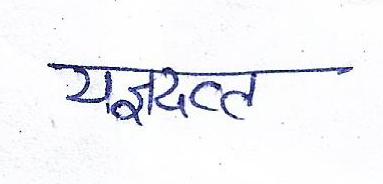 यज्ञदत्त